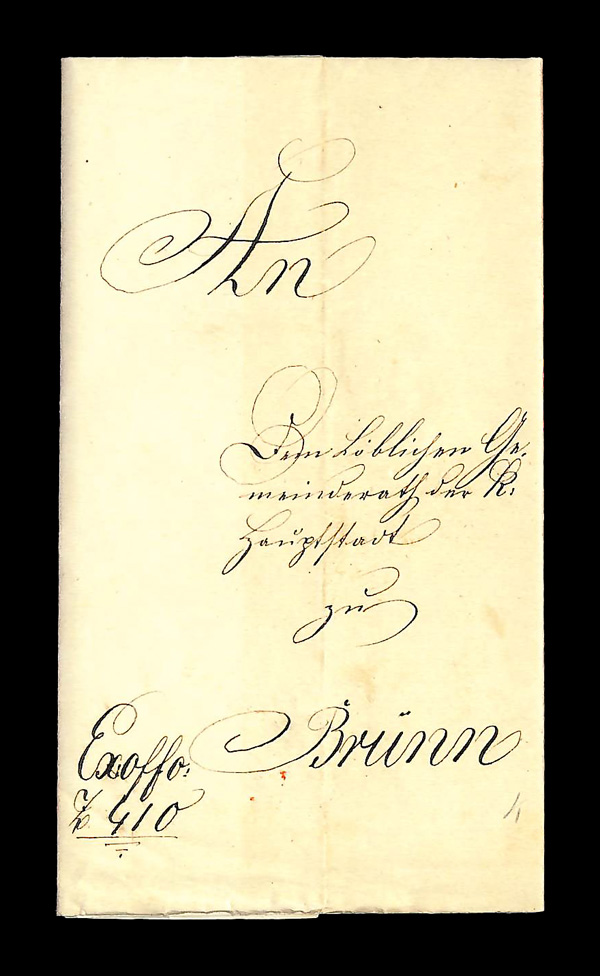 An
Dem Löblichen Ge-
meinderath der K:
Hauptstadt
zu
Brünn
Exoffo:
Z. 410